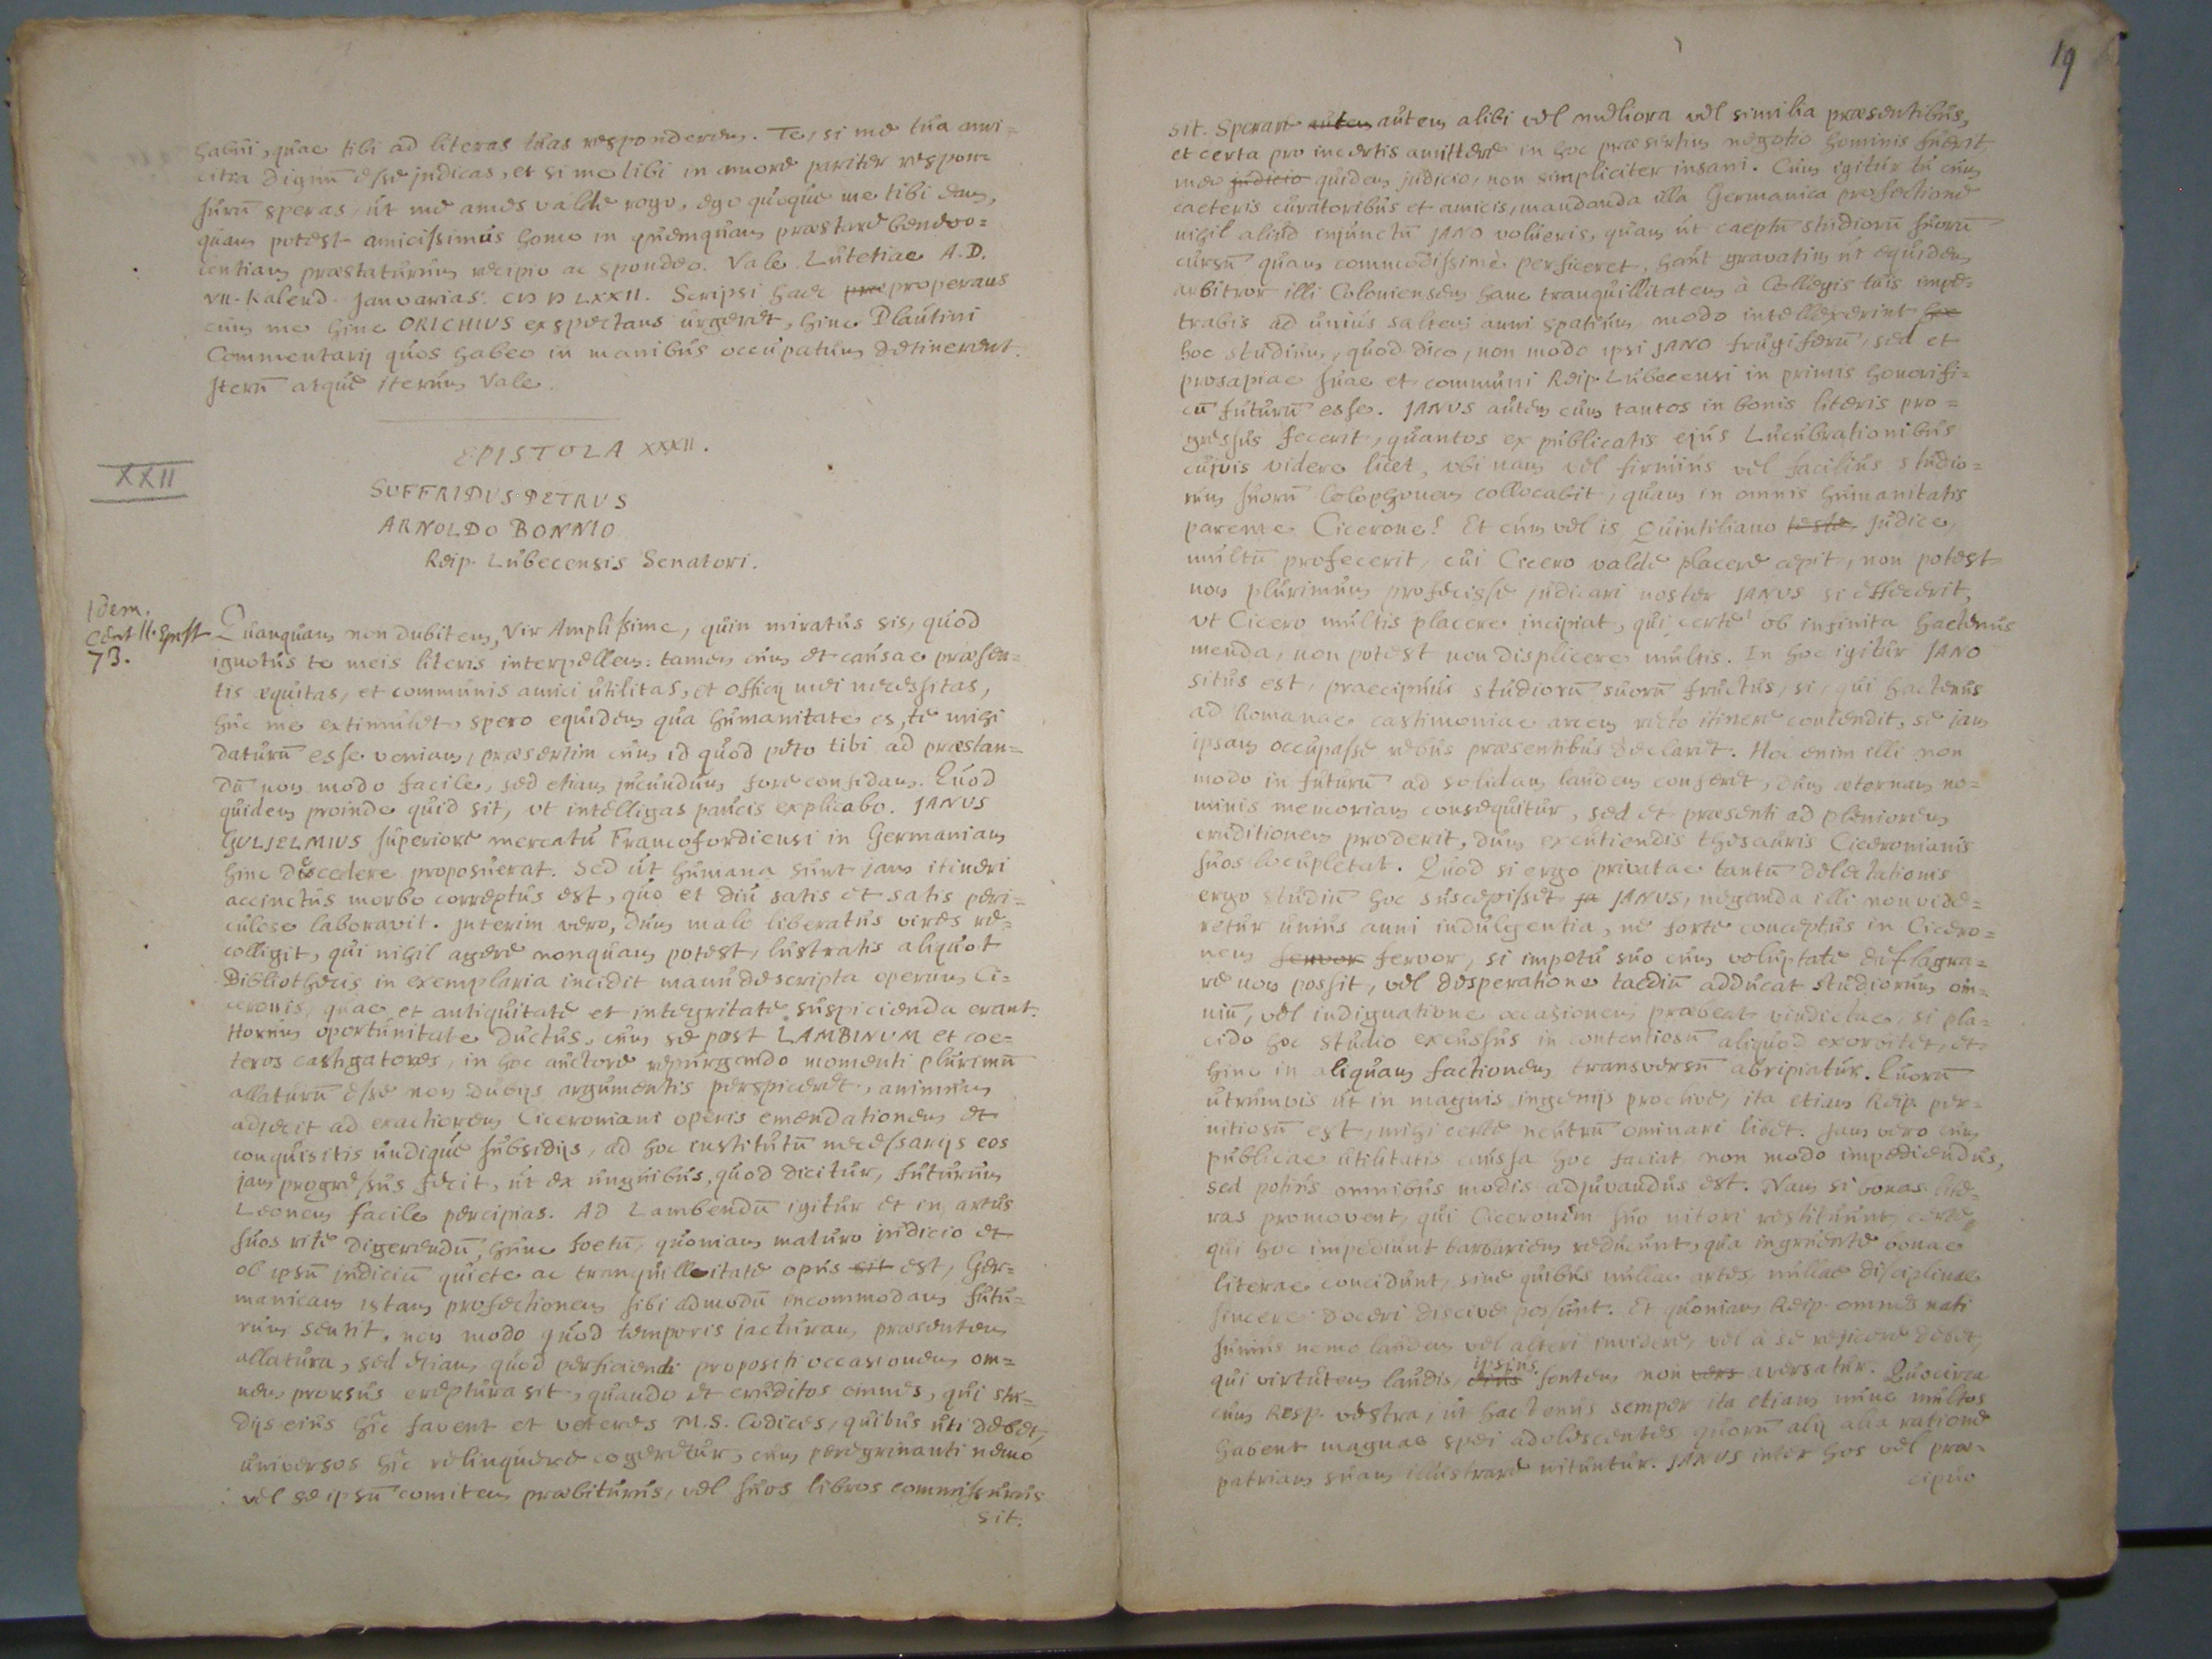 habui, quae tibi ad literas tuas responderem. Te, si me tua ami=
citia dignū esse judicas, et si me tibi in amore pariter respon=
surū speras, ut me ames valde rogo, ego quoque me tibi eam,
quam potest amicissimus homo in quemquam praestare benevo=
lentiam praestaturum recipio ac spondeo. Vale Lutetiae A.D.
VII. Kalend. Januarias. CIↃ IↃ LXXII. Scripsi haec pro properans
cum me hinc ORICHIUS exspectans urgeret, hinc Plautini
Commentarij quos habeo in manibus occupatum detinerent.
Iterū atque iterum Vale.
EPISTOLA XXXII.
XXII
SUFFRIDUS PETRUS
ARNOLDO BONNIO
Reip. Lubecensis Senatori.
Idem.
Cent II. Epist
73.
Quanquam non dubitem, Vir Amplissime, quin miratus sis, quod
ignotus te meis literis interpellem: tamen cum et causae praesen=
tis aequitas, et communis amici utilitas, et officij mei necessitas,
huc me extimulet, spero equidem qua humanitate es, te mihi
daturū esse veniam, praesertim cum id quod peto tibi ad praestan=
dū non modo facile, sed etiam jucundum fore confidam. Quod
quidem proinde quid sit, ut intelligas paucis explicabo. JANUS
GULIELMIUS superiore mercatu Francofordiensi in Germaniam
hinc discedere proposuerat. Sed ut humana sunt jam itineri
accinctus morbo correptus est, quo et diu satis et satis peri=
culose laboravit. Interim vero, dum malo liberatus vires re=
colligit, qui nihil agere nonquam potest, lustratis aliquot
Bibliothecis in exemplaria incidit manu descripta operum Ci=
ceronis, quae et antiquitate et integritate suspicienda erant.
Horum oportunitate ductus, cum se post LAMBINUM et cae=
teros castigatores, in hoc auctore repurgando momenti plurimū
allaturū esse non dubijs argumentis perspiceret, animum
adjecit ad exactiorem Ciceroniani operis emendationem et
conquisitis undique subsidijs, ad hoc institutū necessarijs eos
jam progressus fecit, ut ex unguibus, quod dicitur, futurum
Leonem facile percipias. Ad Lambendū igitur et in artus
suos rite digerendū, hunc foetū, quoniam maturo judicio et
ob ipsū judiciū quiete ac tranquillitate opus sit est, Ger=
manicam istam profectionem sibi admodū incommodam futu=
ram sentit, non modo quod temporis jacturam praesentem
allatura, sed etiam quod perficiendi propositi occasionem om=
nem prorsus ereptura sit, quando et eruditos omnes, qui stu=
dijs eius hic favent et veteres M.S. Codices, quibus uti debet,
universos hic relinquere cogeretur, cum peregrinanti nemo
vel se ipsū comitem praebiturus, vel suos libros commissurus
sit.
19
sit. Sperare autem autem alibi vel meliora vel similia praesentibus,
et certa pro incertis amittere in hoc praesertim negotio hominis fuerit
meo judicio quidem judicio, non simpliciter insani. Cum igitur tu cum
caeteris curatoribus et amicis, mandanda illa Germanica profectione
nihil aliud injunctū JANO volueris, quam ut caeptū studiorū suorū
cursū quam commodissimè perficeret, haut gravatim ut equidem
arbitror illi Coloniensem hanc tranquillitatem à Collegis tuis impe=
trabis ad unius saltem anni spatium, modo intellexerint hoc
hoc studium, quod dico, non modo ipsi JANO frugiferū, sed et
prosapiae suae et communi Reip. Lubecensi in primis honorifi=
cū futurū esse. JANUS autem cum tantos in bonis literis pro=
gressus fecerit, quantos ex publicatis ejus Lucubrationibus
cuivis videre licet, ubi nam vel firmius vel facilius studio=
rum suorū Colophonem collocabit, quam in omnis humanitatis
parente Cicerone! Et cum vel is Quintiliano teste judice,
multū profecerit, cui Cicero valde placere cepit, non potest
non plurimum profecisse judicari noster JANUS si effecerit,
ut Cicero multis placere incipiat, qui certe ob infinita hactenus
menda, non potest non displicere multis. In hoc igitur JANO
situs est, praecipuus studiorū suorū fructus, si, qui hactenus
ad Romanae castimoniae arcem recto itinere contendit, se jam
ipsam occupasse rebus praesentibus declaret. Hoc enim illi non
modo in futurū ad solidam laudem conferet, dum aeternam no=
minis memoriam consequitur, sed et praesenti ad pleniorem
eruditionem proderit, dum excutiendis thesauris Ciceronianis
suos locupletat. Quod si ergo privatae tantū delectationis
ergo studiū hoc suscepisset ja JANUS, neganda illi non vide=
retur unius anni indulgentia, ne forte conceptus in Cicero=
nem fervor fervor, si impetu suo cum voluptate deflagra=
re non possit, vel desperatione taediū adducat studiorum om=
niū, vel indignatione occasionem praebeat vindictae, si pla=
cido hoc studio excussus in contentiosū aliquod exorbitet, et
hinc in aliquam factionem transversū abripiatur. Quorū
utrumvis ut in magnis ingenijs proclive, ita etiam Reip. per=
nitiosū est, mihi certe neutrū ominari libet. Jam vero cum
publicae utilitatis caussa hoc faciat non modo impediendus,
sed potius omnibus modis adjuvandus est. Nam si bonas lite=
ras promovent, qui Ciceronem suo nitori restituunt, certe
qui hoc impediunt barbariem reducunt, qua ingruente bonae
literae concidunt, sine quibus nullae artes, nullae disciplinae
sincere doceri discive possunt. Et quoniam Reip. omnes nati
sumus nemo laudem vel alteri invidere, vel a se rejicere debet,
qui virtutem laudis, eius ipsius fontem non vers aversatur. Quocirca
cum Resp. vestra, ut hactenus semper ita etiam nunc multos
habeat magnae spei adolescentes quorū alij alia ratione
patriam suam illustrare nituntur. JANUS inter hos vel prae=
cipuo